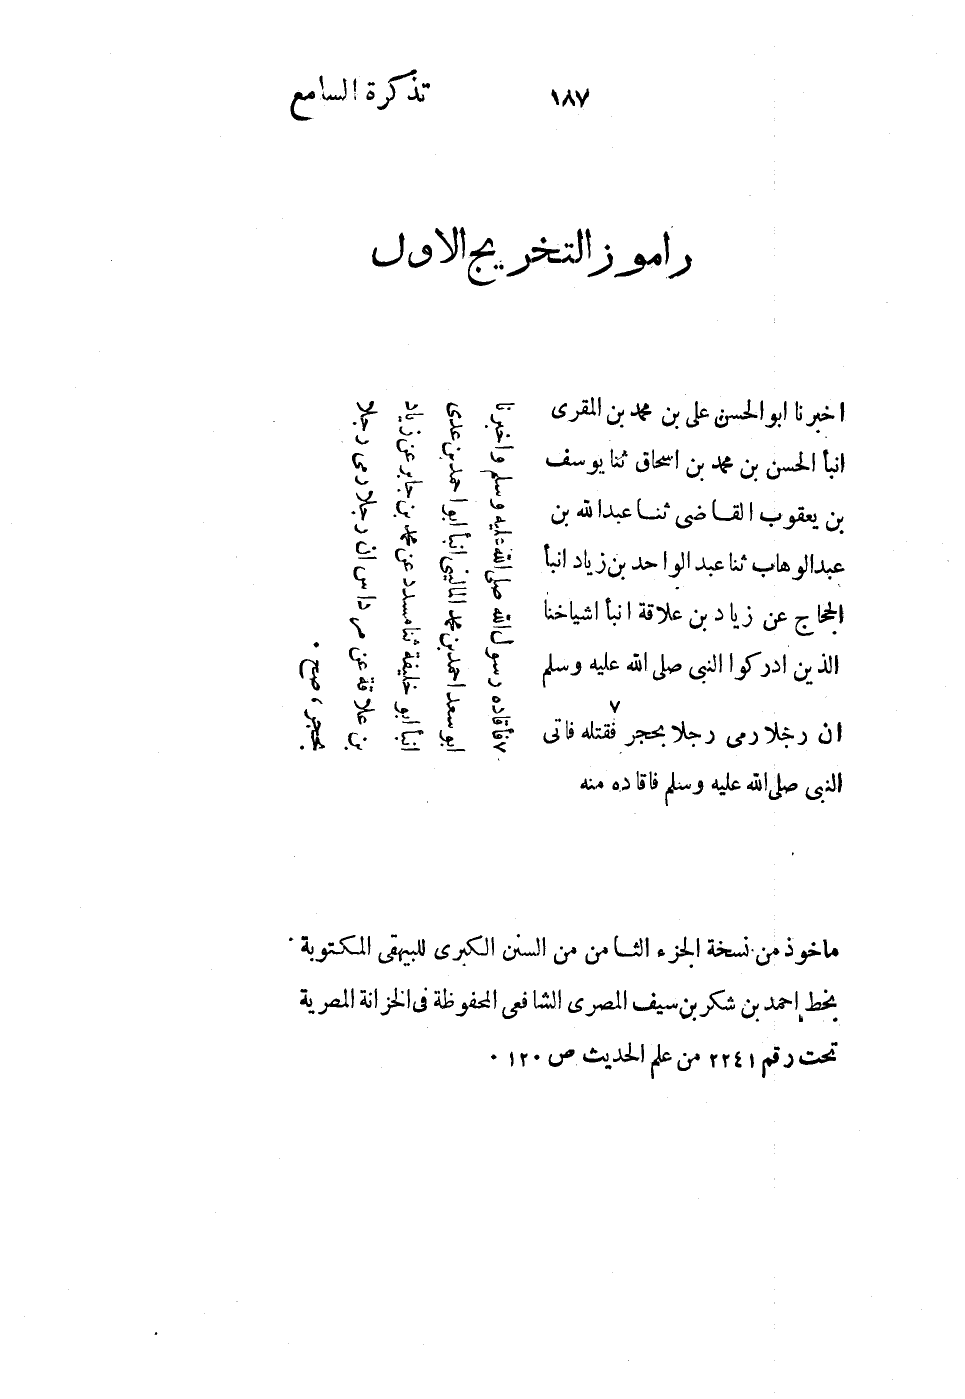 ١٨٧ تذكرة السامع
راموز التخريج الاول
اخبرنا ابو الحسن على بن محمد بن المقرى
انبأ الحسن بن محمد بن اسحاق ثنا يوسف
بن يعقوب القاضى ثنا عبدالله بن
عبدالوهاب ثنا عبد الواحد بن زياد انبأ
الحجاج عن زياد بن علاقة انبأ اشياخنا
الذين ادركوا النبى صلى الله عليه وسلم
ان رجلا رمى رجلا بحجر ٧ فقتله فاتى
النبى صلى الله عليه وسلم فاقاده منه
٧ فأقاده رسول الله صلى الله عليه وسلم واخبرنا
ابو سعد احمد بن محمد المالينى انبأ ابو احمد بن عدى
انبأ ابو خليفة ثنا مسدد عن محمد بن جابر عن زياد
بن علاقة عن مرداس ان رجلا رمى رجلا
بحجر ، صح .
ماخوذ من نسخة الجزء الثامن من السنن الكبرى للبيهقى المكتوبة
بخط احمد بن شكر بن سيف المصرى الشافعى المحفوظة فى الخزانة المصرية
تحت رقم ٢٢٤١ من علم الحديث ص ١٢٠ .